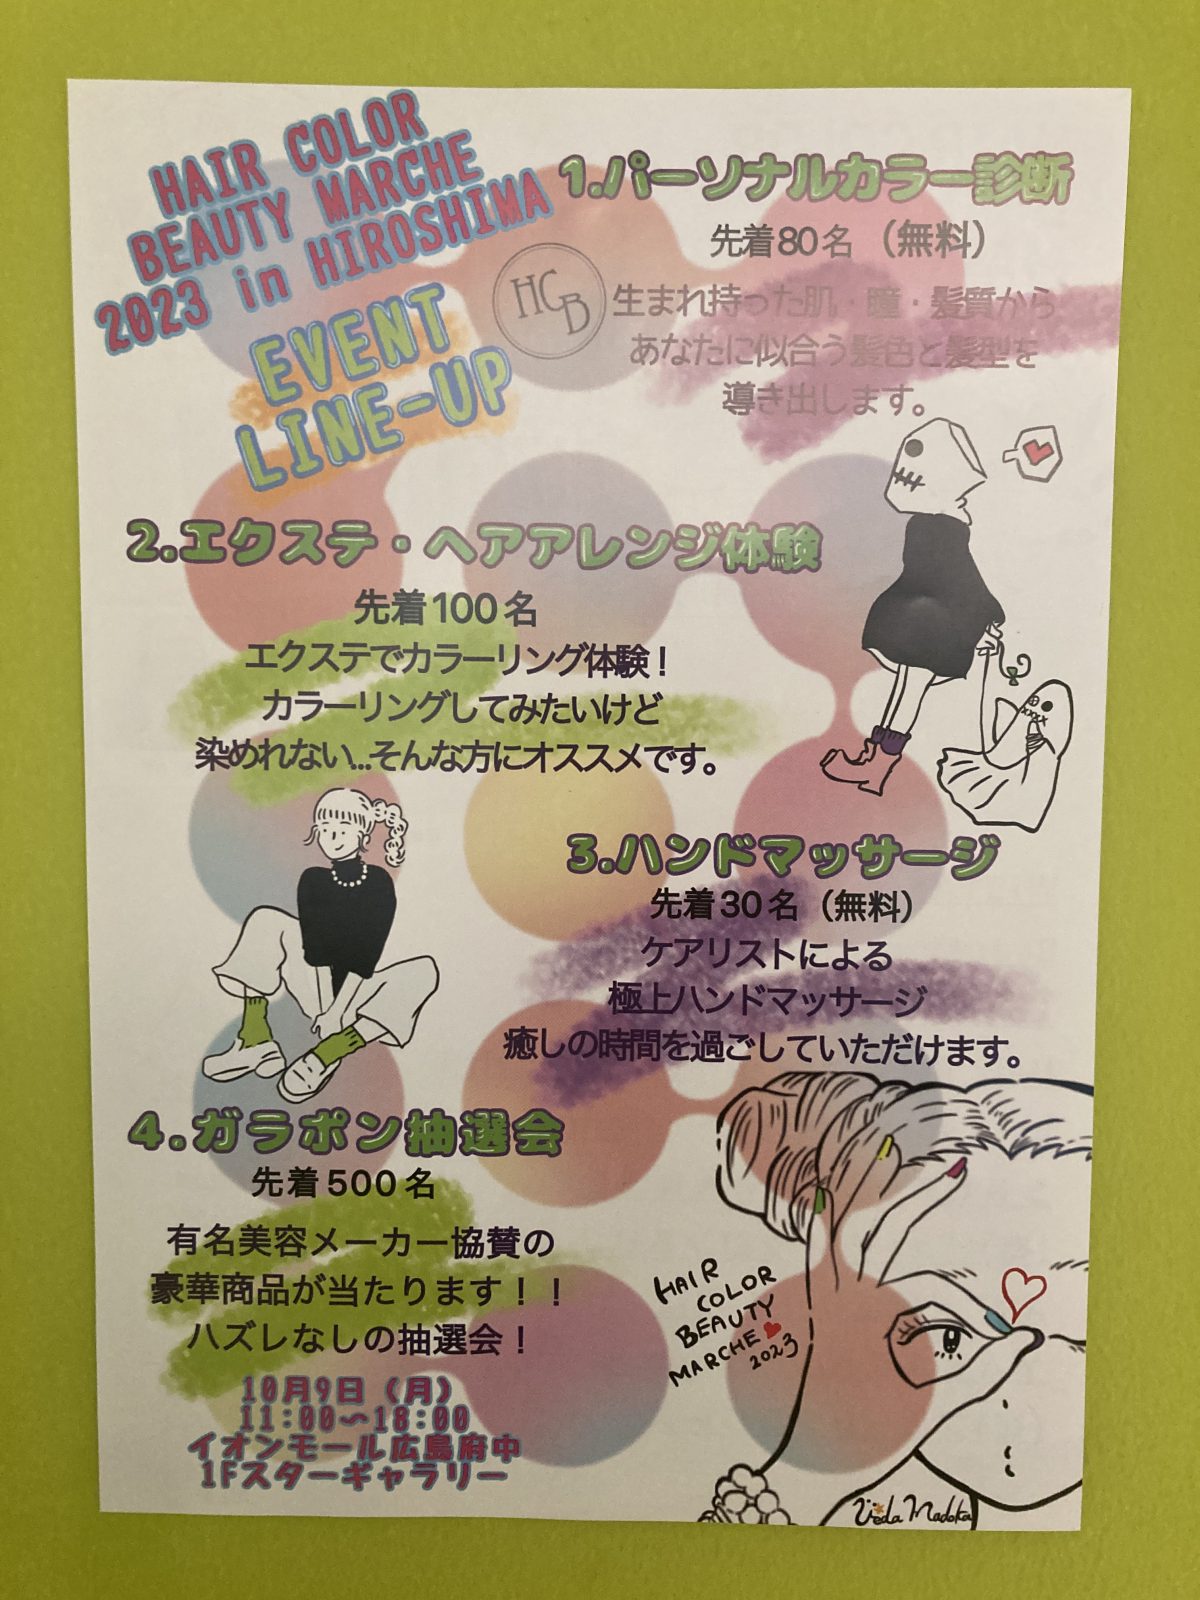 HAIR COLOR
BEAUTY MARCHE
2023 in HIROSHIMA
EVENT
LINE-UP
HCB
1.パーソナルカラー診断
先着80名（無料）
生まれ持った肌・瞳・髪質から
あなたに似合う髪色と髪型を
導き出します。
2.エクステ・ヘアアレンジ体験
先着100名
エクステでカラーリング体験！
カラーリングしてみたいけど
染めれない...そんな方にオススメです。
3.ハンドマッサージ
先着30名（無料）
ケアリストによる
極上ハンドマッサージ
癒しの時間を過ごしていただけます。
4.ガラポン抽選会
先着500名
有名美容メーカー協賛の
豪華商品が当たります！！
ハズレなしの抽選会！
10月9日（月）
11:00〜18:00
イオンモール広島府中
1Fスターギャラリー
HAIR
COLOR
BEAUTY
MARCHE
2023
Ueda Madoka